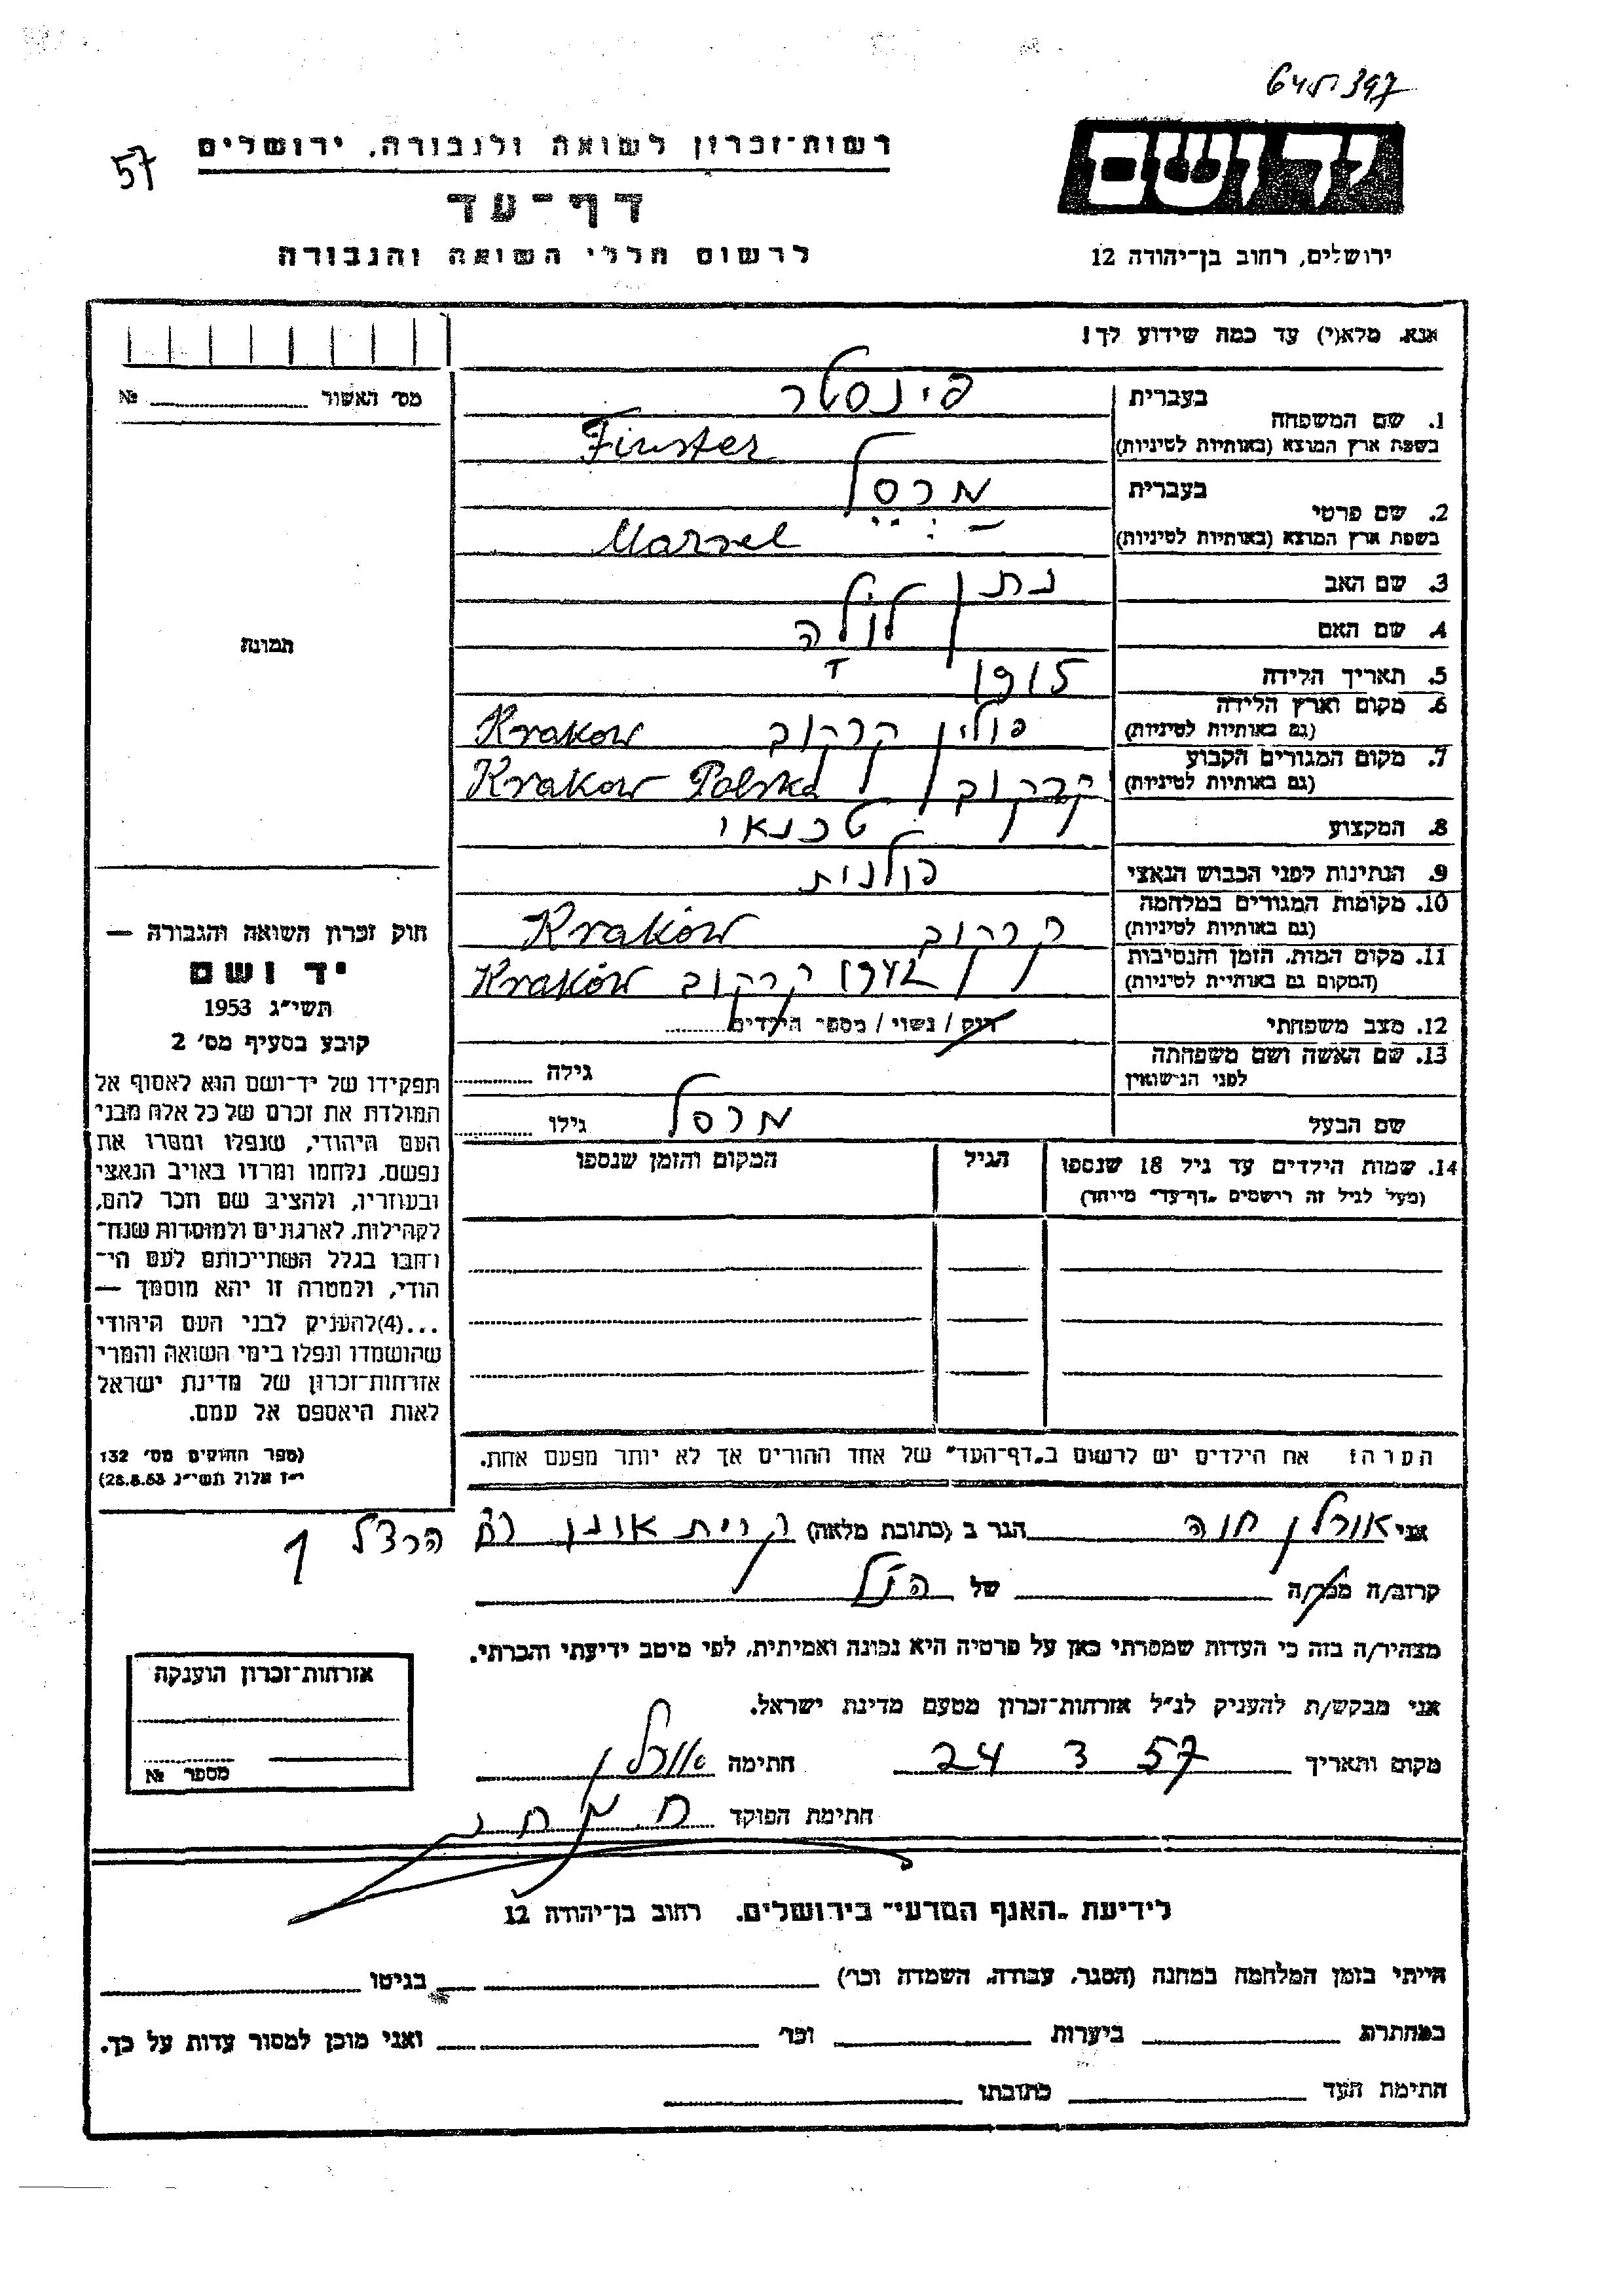 57
רשות־זכרון לשואה ולגבורה, ירושלים
דף־עד
לרשום חללי השואה והגבורה
יד ושם
ירושלים, רחוב בן־יהודה 12
אנא, מלא(י) עד כמה שידוע לך!
מס׳ האשור № 
1. שם המשפחה
בעברית פינסטר
בשפת ארץ המוצא (באותיות לטיניות) Finster
2. שם פרטי
בעברית מרסל
בשפת ארץ המוצא (באותיות לטיניות) Marsel
3. שם האב נתן
4. שם האם לולה
5. תאריך הלידה 1915
6. מקום וארץ הלידה (גם באותיות לטיניות) פולין קרקוב Krakow
7. מקום המגורים הקבוע (גם באותיות לטיניות) קרקוב Krakow Polska
8. המקצוע טכנאי
9. הנתינות לפני הכבוש הנאצי פולנית
10. מקומות המגורים במלחמה (גם באותיות לטיניות) קרקוב Kraków
11. מקום המות, הזמן והנסיבות (המקום גם באותיות לטיניות) קרקוב Kraków
12. מצב משפחתי רוק / נשוי / מספר הילדים
13. שם האשה ושם משפחתה לפני הנישואין גילה
שם הבעל מרסל גילו
14. שמות הילדים עד גיל 18 שנספו
(מעל לגיל זה רישמים „דף־עד” מייחד)
הגיל
המקום והזמן שנספו
הערה: את הילדים יש לרשום ב„דף־העד” של אחד ההורים אך לא יותר מפעם אחת.
תמונה
חוק זכרון השואה והגבורה —
יד ושם
תשי״ג 1953
קובע בסעיף מס׳ 2
תפקידו של יד־ושם הוא לאסוף אל
המולדת את זכרם של כל אלה מבני
העם היהודי, שנפלו ומסרו את
נפשם, נלחמו ומרדו באויב הנאצי
ובעוזריו, ולהציב שם וזכר להם,
לקהילות, לארגונים ולמוסדות שנח־
רחבו בגלל השתייכותם לעם הי־
הודי, ולמטרה זו יהא מוסמך —
...(4)להעניק לבני העם היהודי
שהושמדו ונפלו בימי השואה והמרי
אזרחות־זכרון של מדינת ישראל
לאות היאספם אל עמם.
(ספר החוקים מס׳ 132
י״ז אלול תשי״ג 28.8.53)
אני אורלן חנה הגר ב (כתובת מלאה) קרית אונו רח הרצל 1
קרוב/ה מכר/ה של הנ״ל
מצהיר/ה בזה כי העדות שמסרתי כאן על פרטיה היא נכונה ואמיתית, לפי מיטב ידיעתי והכרתי.
אני מבקש/ת להעניק לנ״ל אזרחות־זכרון מטעם מדינת ישראל.
מקום ותאריך 24 3 57 חתימה אורלן
חתימת הפוקד
אזרחות־זכרון הוענקה
מספר №
לידיעת „האגף המדעי” בירושלים. רחוב בן־יהודה 12
הייתי בזמן המלחמה במחנה (הסגר, עבודה, השמדה וכו׳) בגיטו
במחתרת ביערות וכו׳ ואני מוכן למסור עדות על כך.
חתימת העד כתובתו